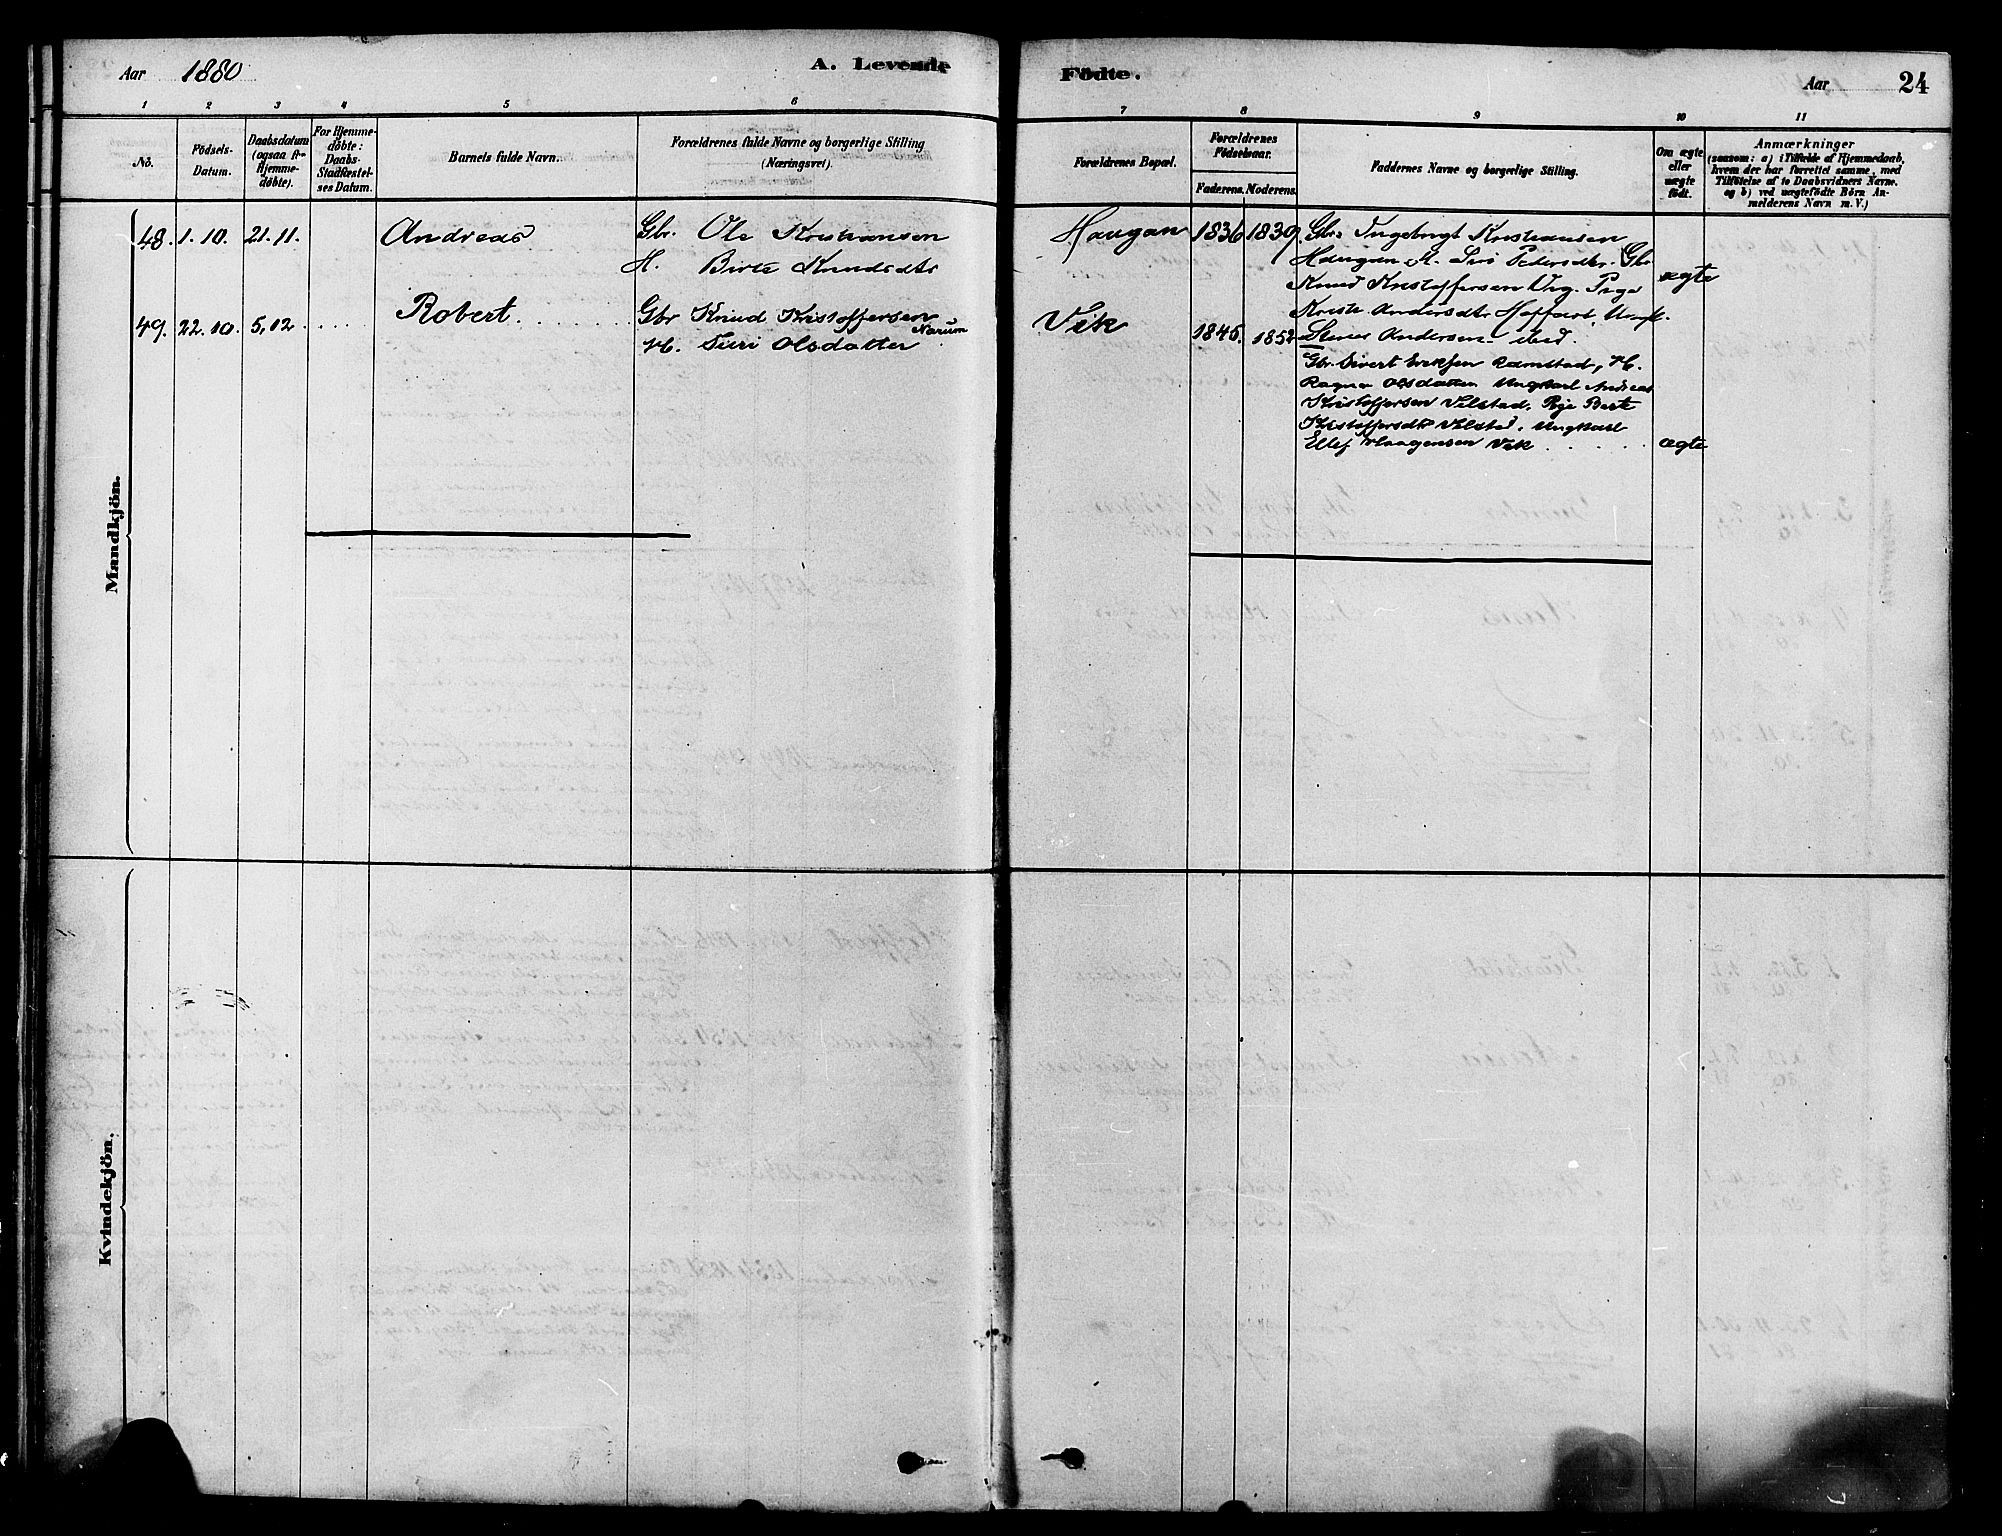 Aar 1880
A. Levende Födte.
Aar 24
1 2 3 4 5 6 7 8 9 10 11
No.
Födsels-Datum.
Daabsdatum (ogsaa f. Hjemme-döbte).
For Hjemme-döbte: Daabs-Stadfæstel-ses Datum.
Barnets fulde Navn.
Forældrenes fulde Navne og borgerlige Stilling
(Næringsvei).
Forældrenes Bopæl.
Forældrenes Födselsaar.
Faderens. Moderens.
Faddernes Navne og borgerlige Stilling.
Om ægte eller uægte födt.
Anmærkninger
(saasom: a) i Tilfælde af Hjemmedaab,
hvem der har forrettet samme, med
Tilföielse af to Daabsvidners Navne.
og b) ved uægtefödte Börn An-
melderens Navn m. V.)
Mandkjön.
48. 1.10. 21.11. Andreas Gbr. Ole Kristiansen Haugan 1836 1839 Gbr. Ingebregt Kristiansen
H. Birte Knudsdtr Haugan H. Siri Pedersdtr. Gbr
Knud Kristoffersen Ung. Pige ægte
49. 22.10. 5.12 Robert Gbr Knud Kristoffersen Narum Vik 1845. 1852 Kriste Andersdtr Hoffart, Ungk.
H. Siri Olsdatter Stener Andersen ibid.
Gbr. Sivert Eriksen Ramstad, H.
Ragne Olsdatter Ungkarl Andreas
Kristoffersen Vilstad. Pige Berte
Kristoffersdtr Vilstad. Ungkarl
Ellef Haagensen Vik ægte
Kvindekjön.